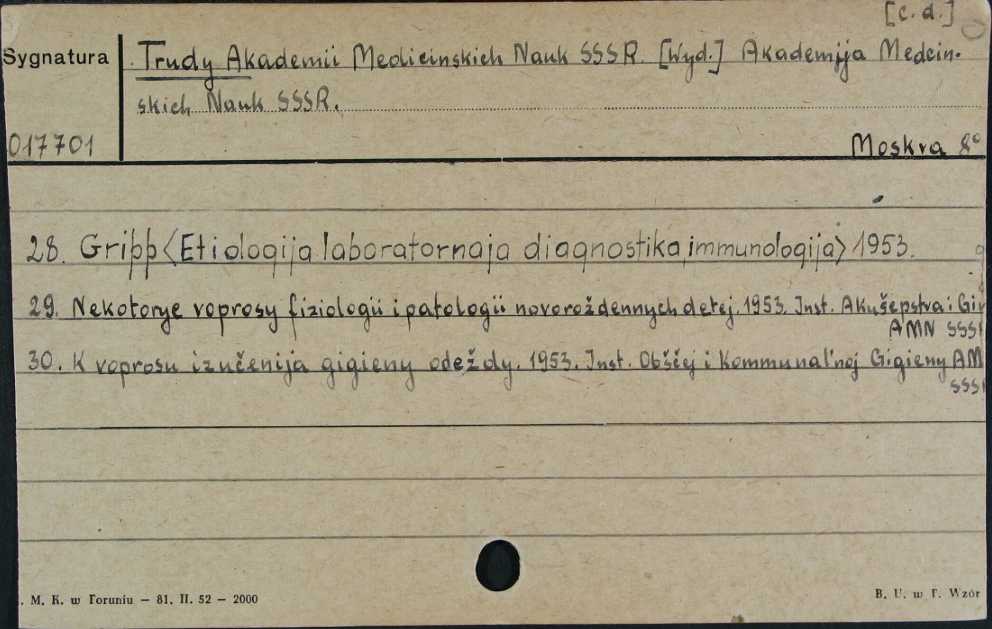 [c. d.]
Sygnatura
Trudy Akademii Medicinskich Nauk SSSR. [Wyd.] Akademija Medcin-
skich Nauk SSSR.
017701
Moskva 8°
28. Gripp <Etiologija laboratornaja diagnostika, immunologija> 1953.
29. Nekotorye voprosy fiziologii i patologii novoroždennych detej. 1953. Inst. Akušerstva i Gi
AMN SSS
30. K voprosu izučenija gigieny odeždy. 1953. Inst. Obščej i Kommunal'noj Gigieny AM
SSS
. M. K. w Toruniu — 81. II. 52 — 2000
B. U. w T. Wzór